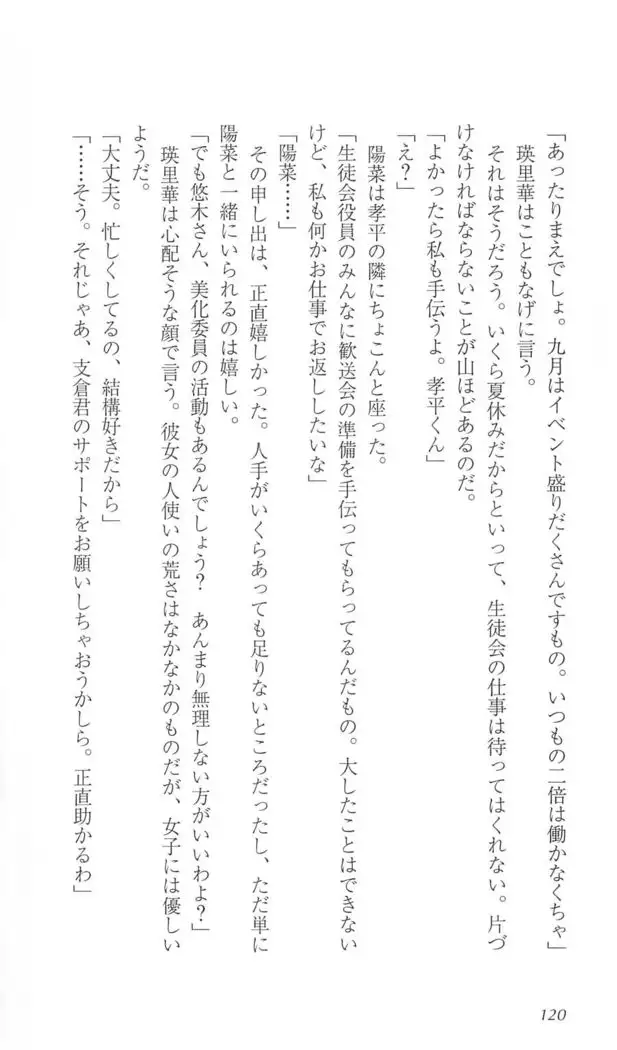 「あったりまえでしょ。九月はイベント盛りだくさんですもの。いつもの二倍は働かなくちゃ」
瑛里華はこともなげに言う。
それはそうだろう。いくら夏休みだからといって、生徒会の仕事は待ってはくれない。片づ
けなければならないことが山ほどあるのだ。
「よかったら私も手伝うよ。孝平くん」
「え？」
陽菜は孝平の隣にちょこんと座った。
「生徒会役員のみんなに歓送会の準備を手伝ってもらってるんだもの。大したことはできない
けど、私も何かお仕事でお返ししたいな」
「陽菜……」
その申し出は、正直嬉しかった。人手がいくらあっても足りないところだったし、ただ単に
陽菜と一緒にいられるのは嬉しい。
「でも悠木さん、美化委員の活動もあるんでしょう？　あんまり無理しない方がいいわよ？」
瑛里華は心配そうな顔で言う。彼女の人使いの荒さはなかなかのものだが、女子には優しい
ようだ。
「大丈夫。忙しくしてるの、結構好きだから」
「……そう。それじゃあ、支倉君のサポートをお願いしちゃおうかしら。正直助かるわ」
120